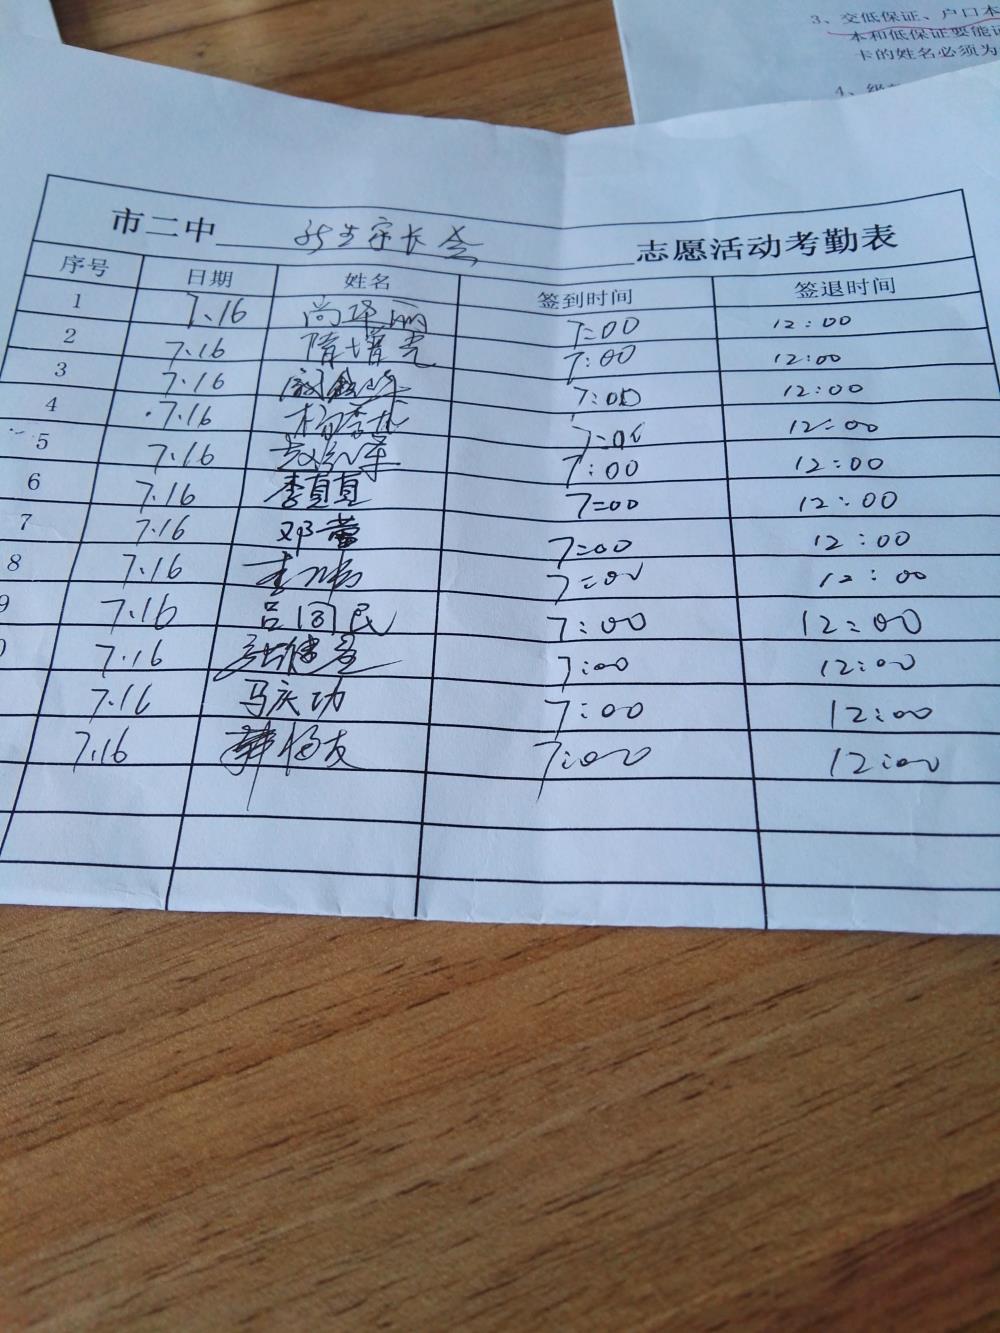 3、交低保证、户口本
本和低保证要能
卡的姓名必须为
4、
市二中 新生家长会 志愿活动考勤表
序号 日期 姓名 签到时间 签退时间
1 7.16 尚华丽 7:00 12:00
2 7.16 隋增亮 7:00 12:00
3 7.16 7:00 12:00
4 7.16 7:00 12:00
5 7.16 7:00 12:00
6 7.16 李真真 7:00 12:00
7 7.16 邓蕾 7:00 12:00
8 7.16 7:00 12:00
9 7.16 吕国民 7:00 12:00
7.16 7:00 12:00
7.16 马庆功 7:00 12:00
7.16 7:00 12:00